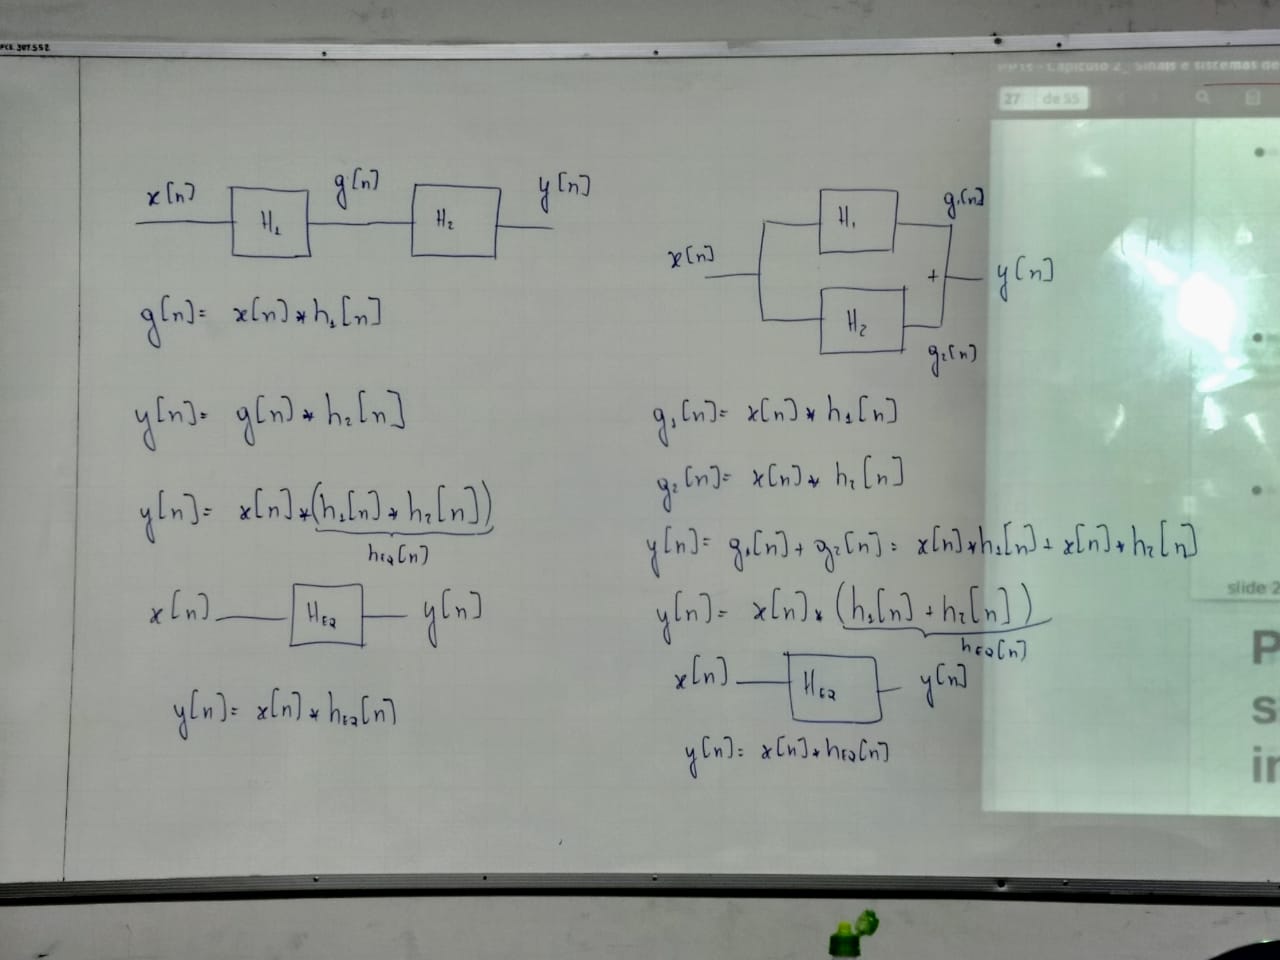 x[n] H₁ g[n] H₂ y[n]
g[n]= x[n]*h₁[n]
y[n]= g[n]*h₂[n]
y[n]= x[n]*(h₁[n]*h₂[n])
hEQ[n]
x[n] HEQ y[n]
y[n]= x[n]*hEQ[n]
H₁ g₁[n]
x[n] + y[n]
H₂ g₂[n]
g₁[n]= x[n]*h₁[n]
g₂[n]= x[n]*h₂[n]
y[n]= g₁[n]+g₂[n]= x[n]*h₁[n]+x[n]*h₂[n]
y[n]= x[n]*(h₁[n]+h₂[n])
hEQ[n]
x[n] HEQ y[n]
y[n]= x[n]*hEQ[n]
Capítulo 2_ Sinais e sistemas de
27 de 55
slide 2
P
s
in